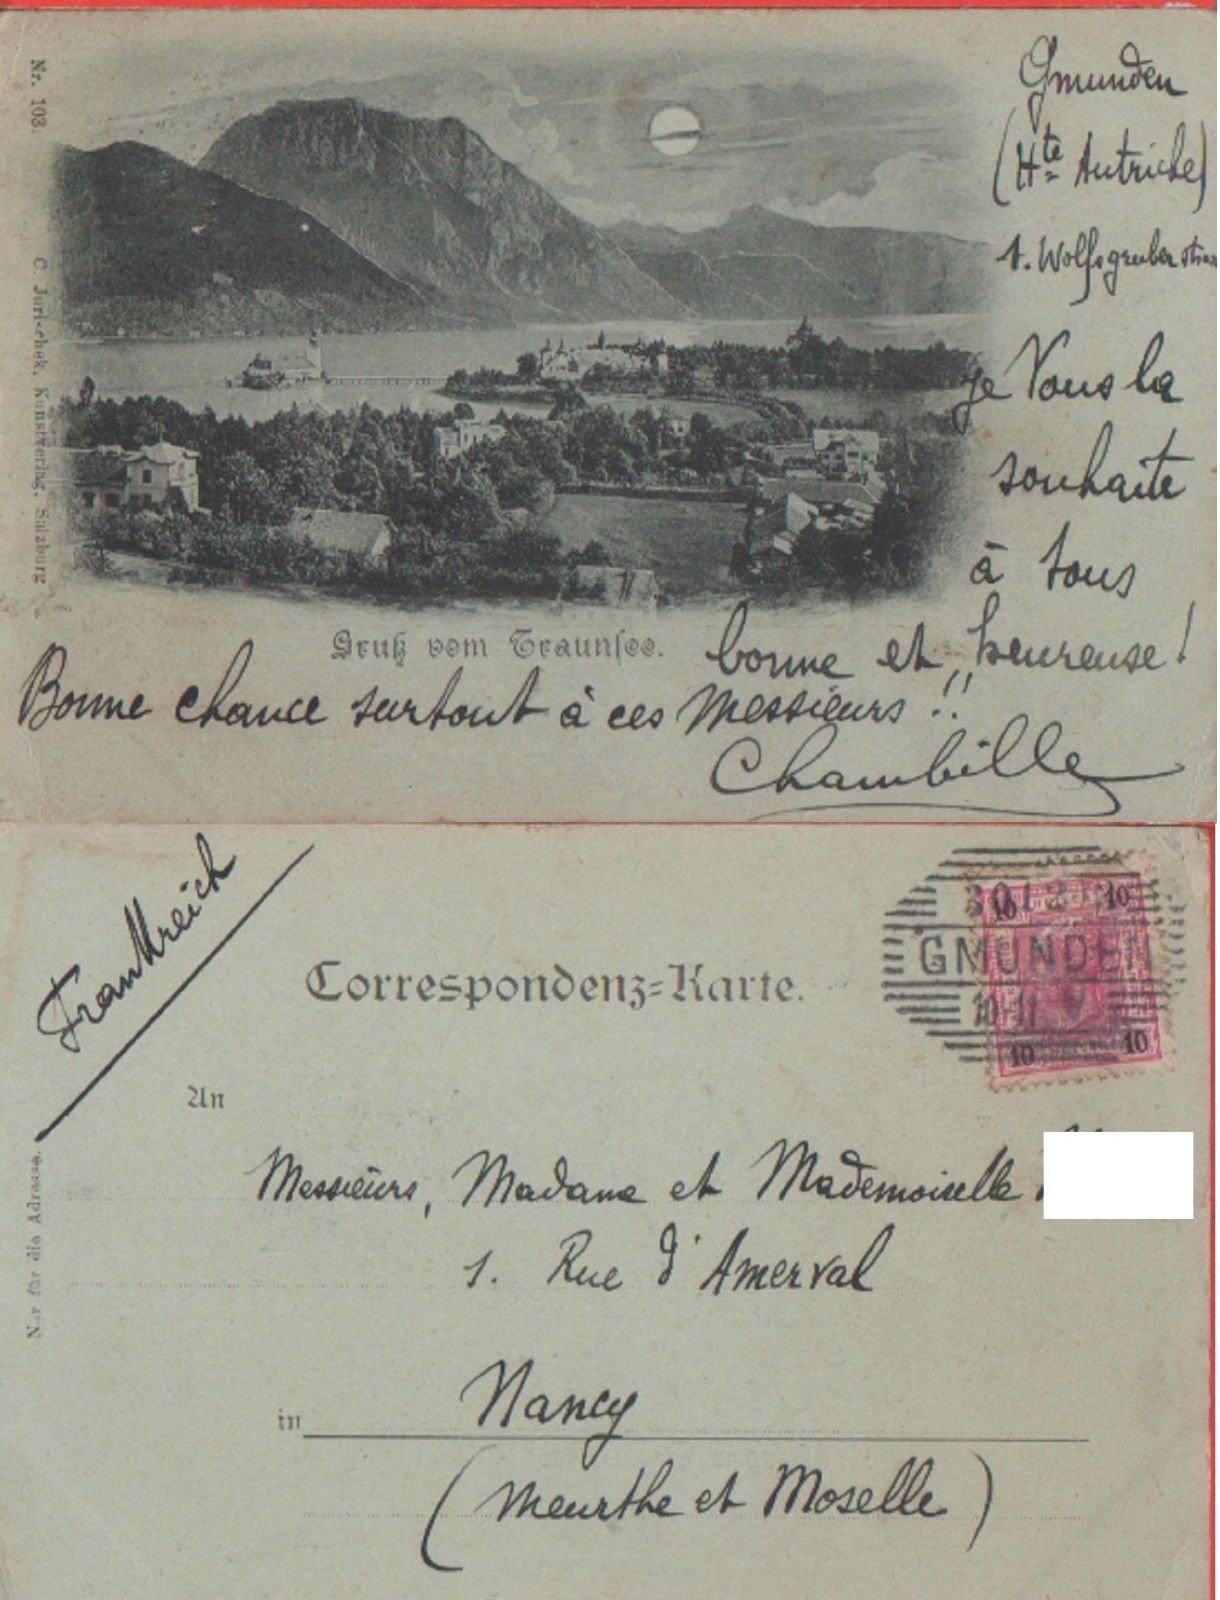 Nr. 103
C. Jurischek, Kunstverlag, Salzburg
Gmunden
(Hte Autriche)
1. Wolfsgruber
je Vous la
souhaite
à tous
bonne et heureuse!
Gruß vom Traunsee.
Bonne chance surtout à ces Messieurs!!
Chambille
Frankreich
Correspondenz-Karte.
10
10
GMUNDEN
10-11 V
10
10
An
Messieurs, Madame et Mademoiselle
1. Rue d'Amerval
Nur für die Adresse.
in
Nancy
(Meurthe et Moselle)